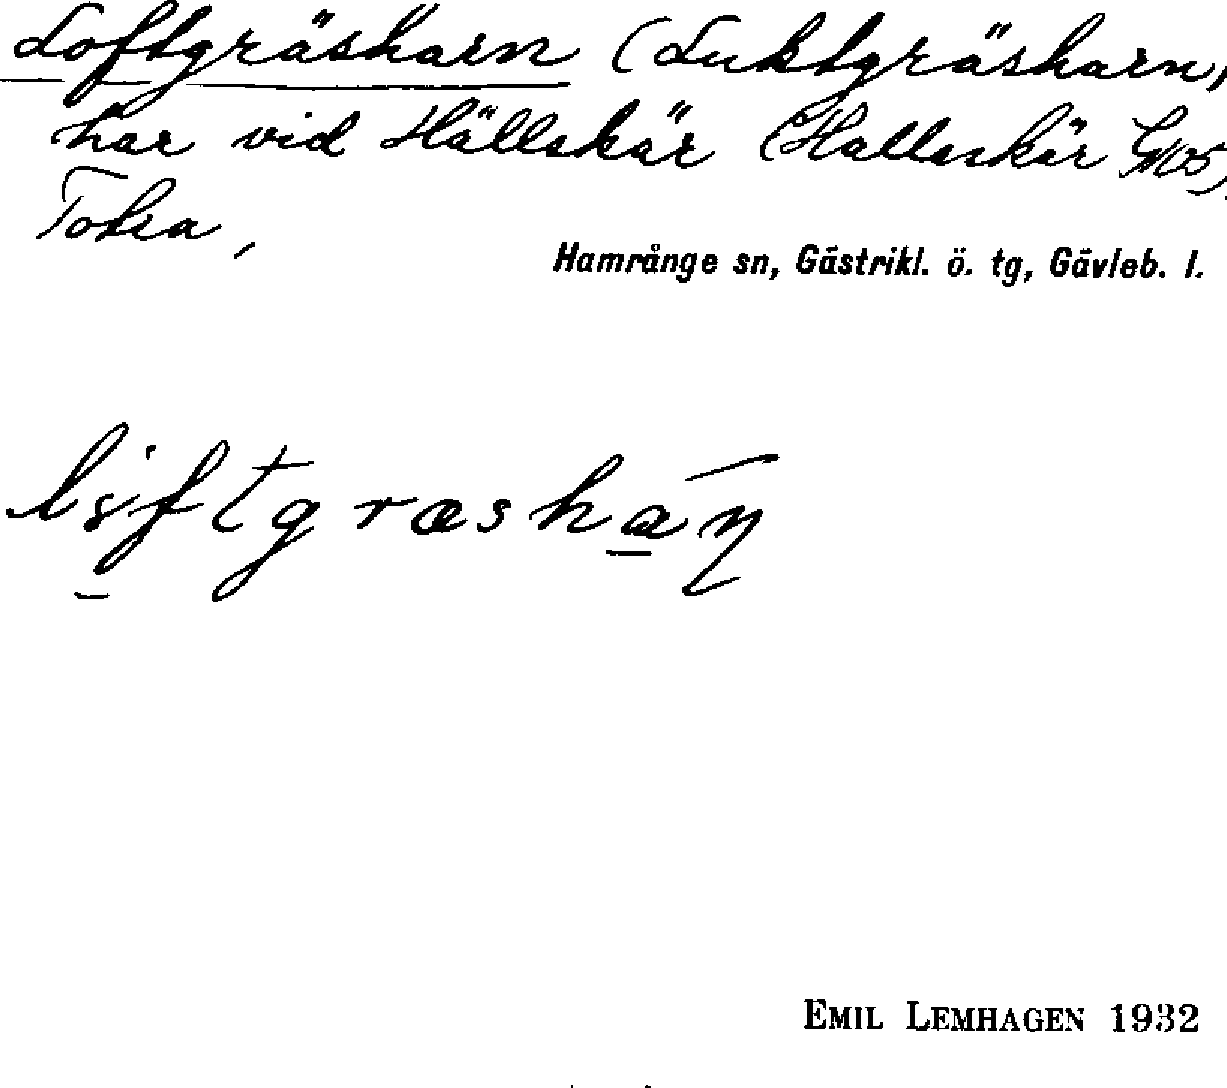 Loftgräsharn (Luktgräsharn,
har vid Hällskär (Halleskär G105,
Totra,
Hamrånge sn, Gästrikl. ö. tg, Gävleb. l.
EMIL LEMHAGEN 1932